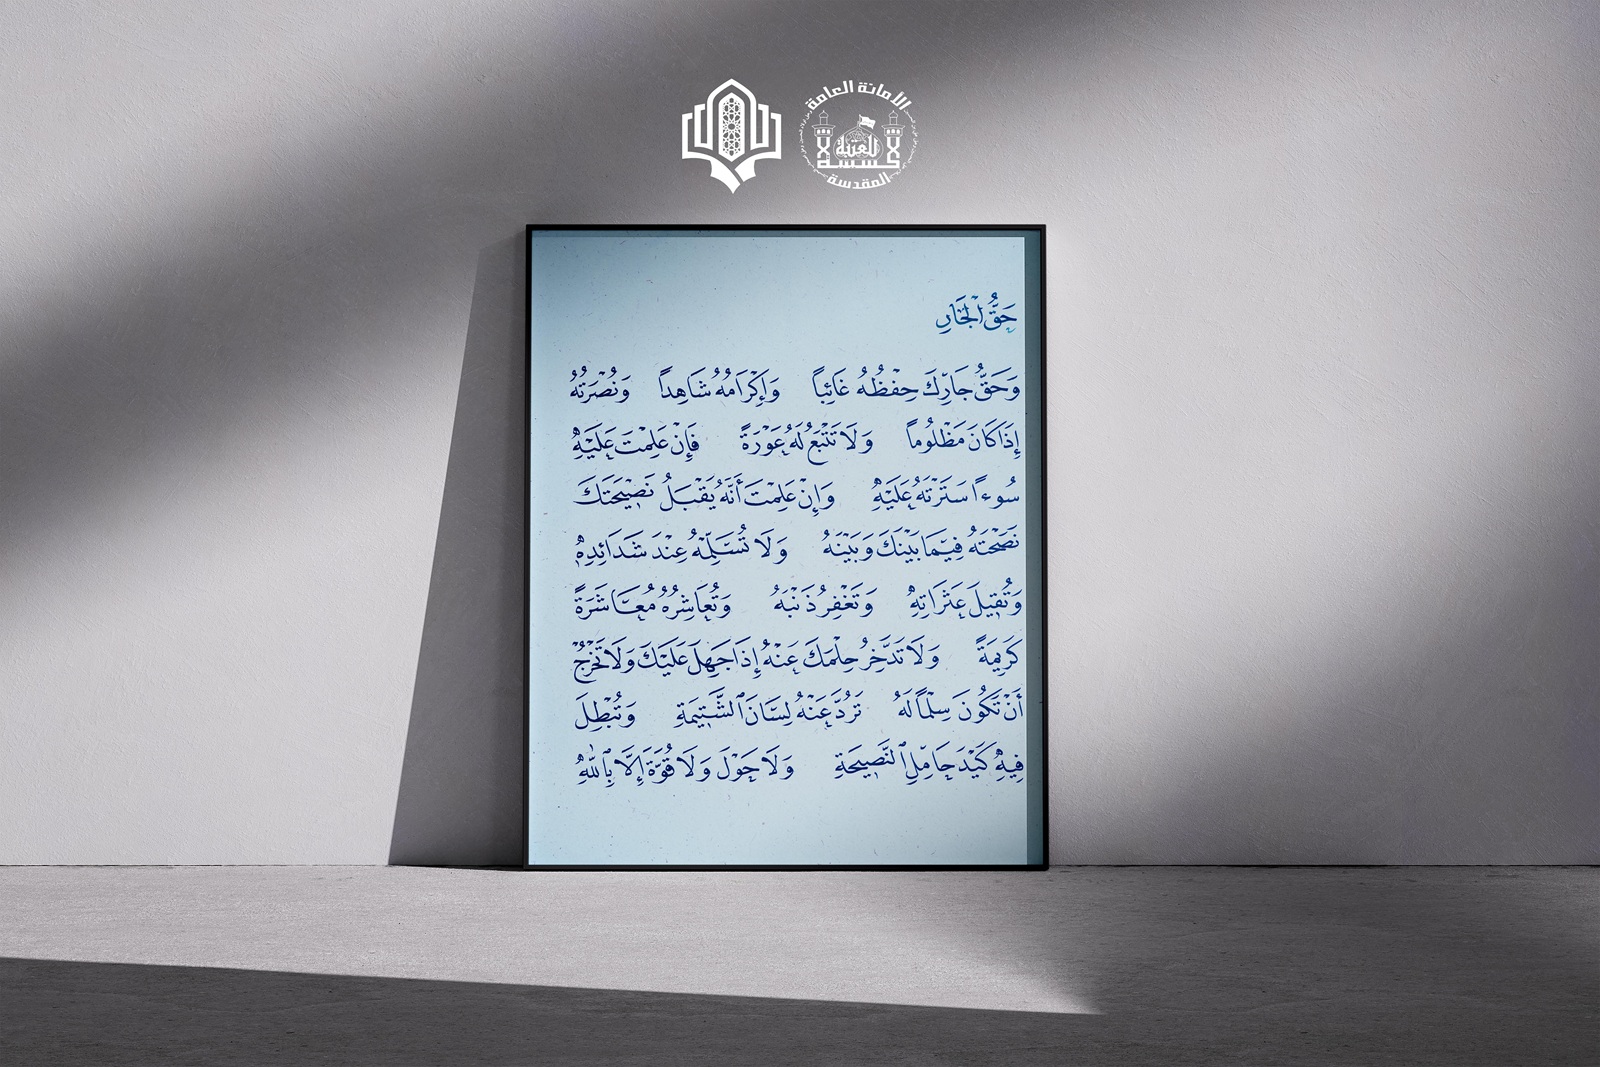 الأمانة العامة
للعتبة
المقدسة
حَقُّ الْجَارِ
وَحَقُّ جَارِكَ حِفْظُهُ غَائِبًا وَإِكْرَامُهُ شَاهِدًا وَنُصْرَتُهُ
إِذَا كَانَ مَظْلُومًا وَلَا تَتَبَّعْ لَهُ عَوْرَةً فَإِنْ عَلِمْتَ عَلَيْهِ
سُوءًا سَتَرْتَهُ عَلَيْهِ وَإِنْ عَلِمْتَ أَنَّهُ يَقْبَلُ نَصِيحَتَكَ
نَصَحْتَهُ فِيمَا بَيْنَكَ وَبَيْنَهُ وَلَا تُسَلِّمْهُ عِنْدَ شَدَائِدِهِ
وَتُقِيلَ عَثَرَاتِهِ وَتَغْفِرُ ذَنْبَهُ وَتُعَاشِرُهُ مُعَاشَرَةً
كَرِيمَةً وَلَا تَدَّخِرْ حِلْمَكَ عَنْهُ إِذَا جَهِلَ عَلَيْكَ وَلَا تَخْرُجْ
أَنْ تَكُونَ سِلْمًا لَهُ تَرُدُّ عَنْهُ لِسَانَ الشَّتِيمَةِ وَتُبْطِلَ
فِيهِ كَيْدَ حَامِلِ النَّصِيحَةِ وَلَا حَوْلَ وَلَا قُوَّةَ إِلَّا بِاللَّهِ